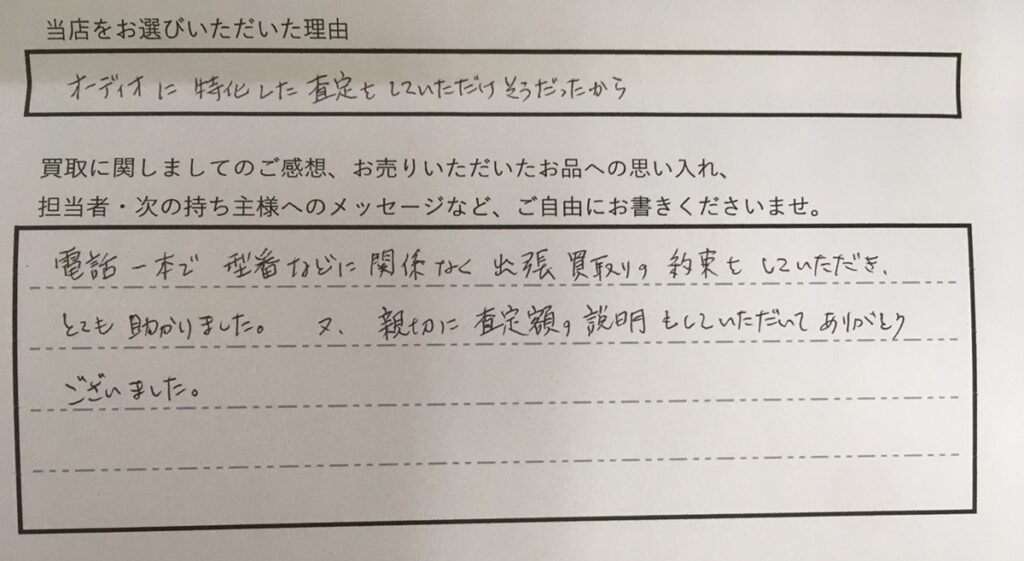 当店をお選びいただいた理由
オーディオに特化した査定をしていただけそうだったから
買取に関しましてのご感想、お売りいただいたお品への思い入れ、
担当者・次の持ち主様へのメッセージなど、ご自由にお書きくださいませ。
電話一本で型番などに関係なく出張買取りの約束もしていただき、
とても助かりました。又、親切に査定額の説明もしていただいてありがとう
ございました。